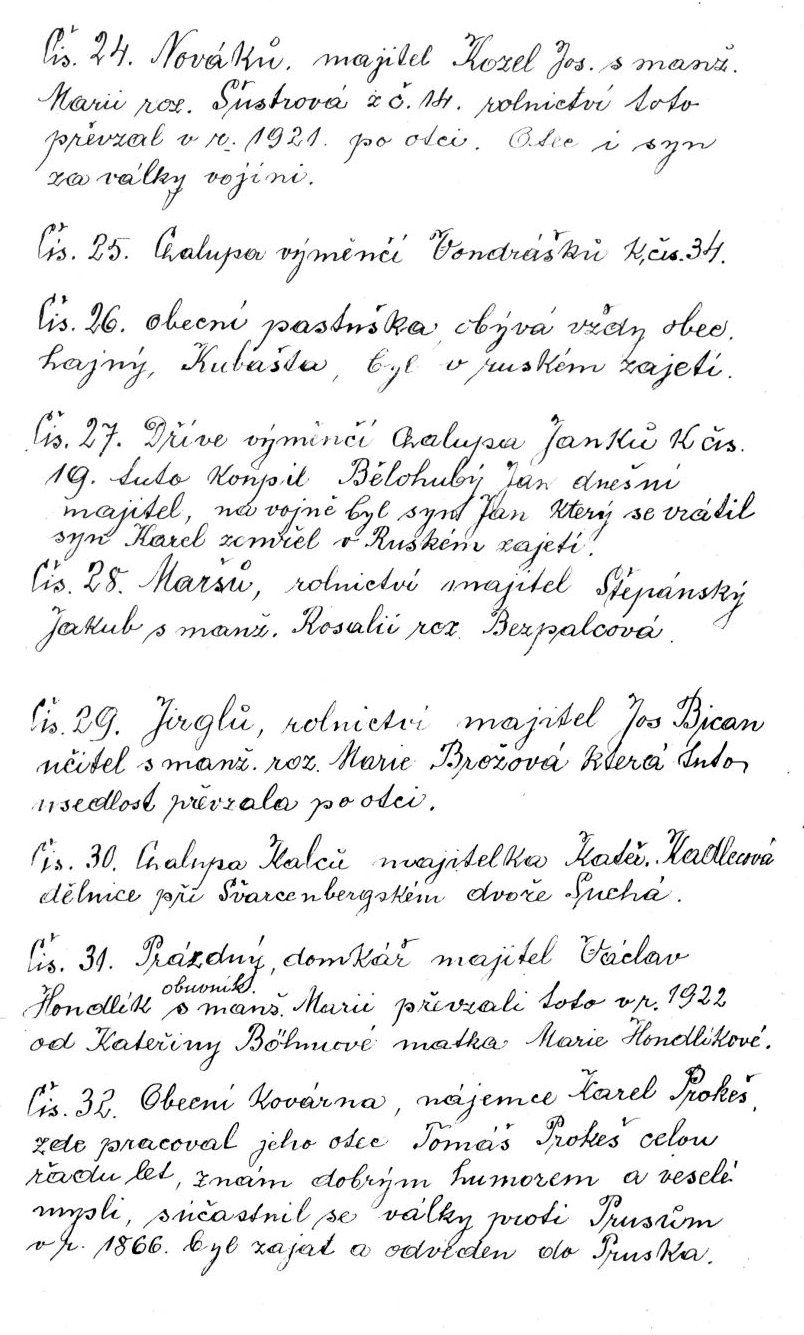 Čís. 24. Nováků. majitel Kozel Jos. s manž.
Marii roz. Šůstrová z č. 14. rolnictví toto
převzal v r. 1921. po otci. Otec i syn
za války vojíni.
Čís. 25. Chalupa výměnčí Vondrášků k,čís.34.
Čís. 26. obecní pastuška, obývá vždy obec.
hajný, Kubašta, byl v ruském zajetí.
Čís. 27. Dříve výměnčí chalupa Janků k čís.
19. tuto koupil Bělohubý Jan dnešní
majitel, na vojně byl syn Jan který se vrátil
syn Karel zemřel v Ruském zajetí.
Čís. 28. Maršů, rolnictví majitel Štěpánský
Jakub s manž. Rosalií roz. Bezpalcová.
Čís. 29. Jirglů, rolnictví majitel Jos Bican
učitel s manž. roz. Marie Brožová která tuto
usedlost převzala po otci.
Čís. 30. Chalupa Kalců majitelka Kateř. Kadlecová
dělnice při Švarcenbergském dvoře Suchá.
Čís. 31. Prázdný, domkář majitel Václav
obuvník.
Hondlík s manž. Marií převzali toto v r. 1922
od Kateřiny Böhmové matka Marie Hondlíkové.
Čís. 32. Obecní kovárna, nájemce Karel Prokeš,
zde pracoval jeho otec Tomáš Prokeš celou
řadu let, znám dobrým humorem a veselé
mysli, súčastnil se války proti Prusům
v r. 1866. byl zajat a odveden do Pruska.